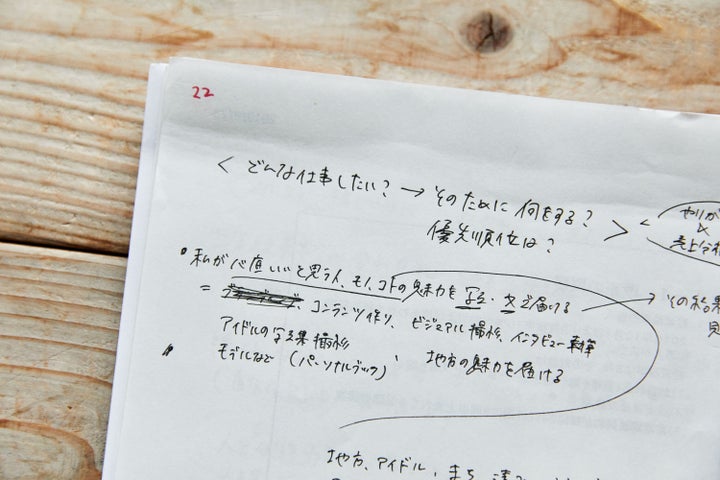 22
< どんな仕事したい? → そのために何をする?
優先順位は? >
やりが
&
売上分
・私が心底いいと思う人、モノ、コトの魅力を写真・文で届ける → その結果
= コンテンツ作り、ビジュアル撮影、インタビュー執筆
アイドルの写真集撮影
モデルなど (パーソナルブック) 地方の魅力を届ける
地方、アイドル、まち